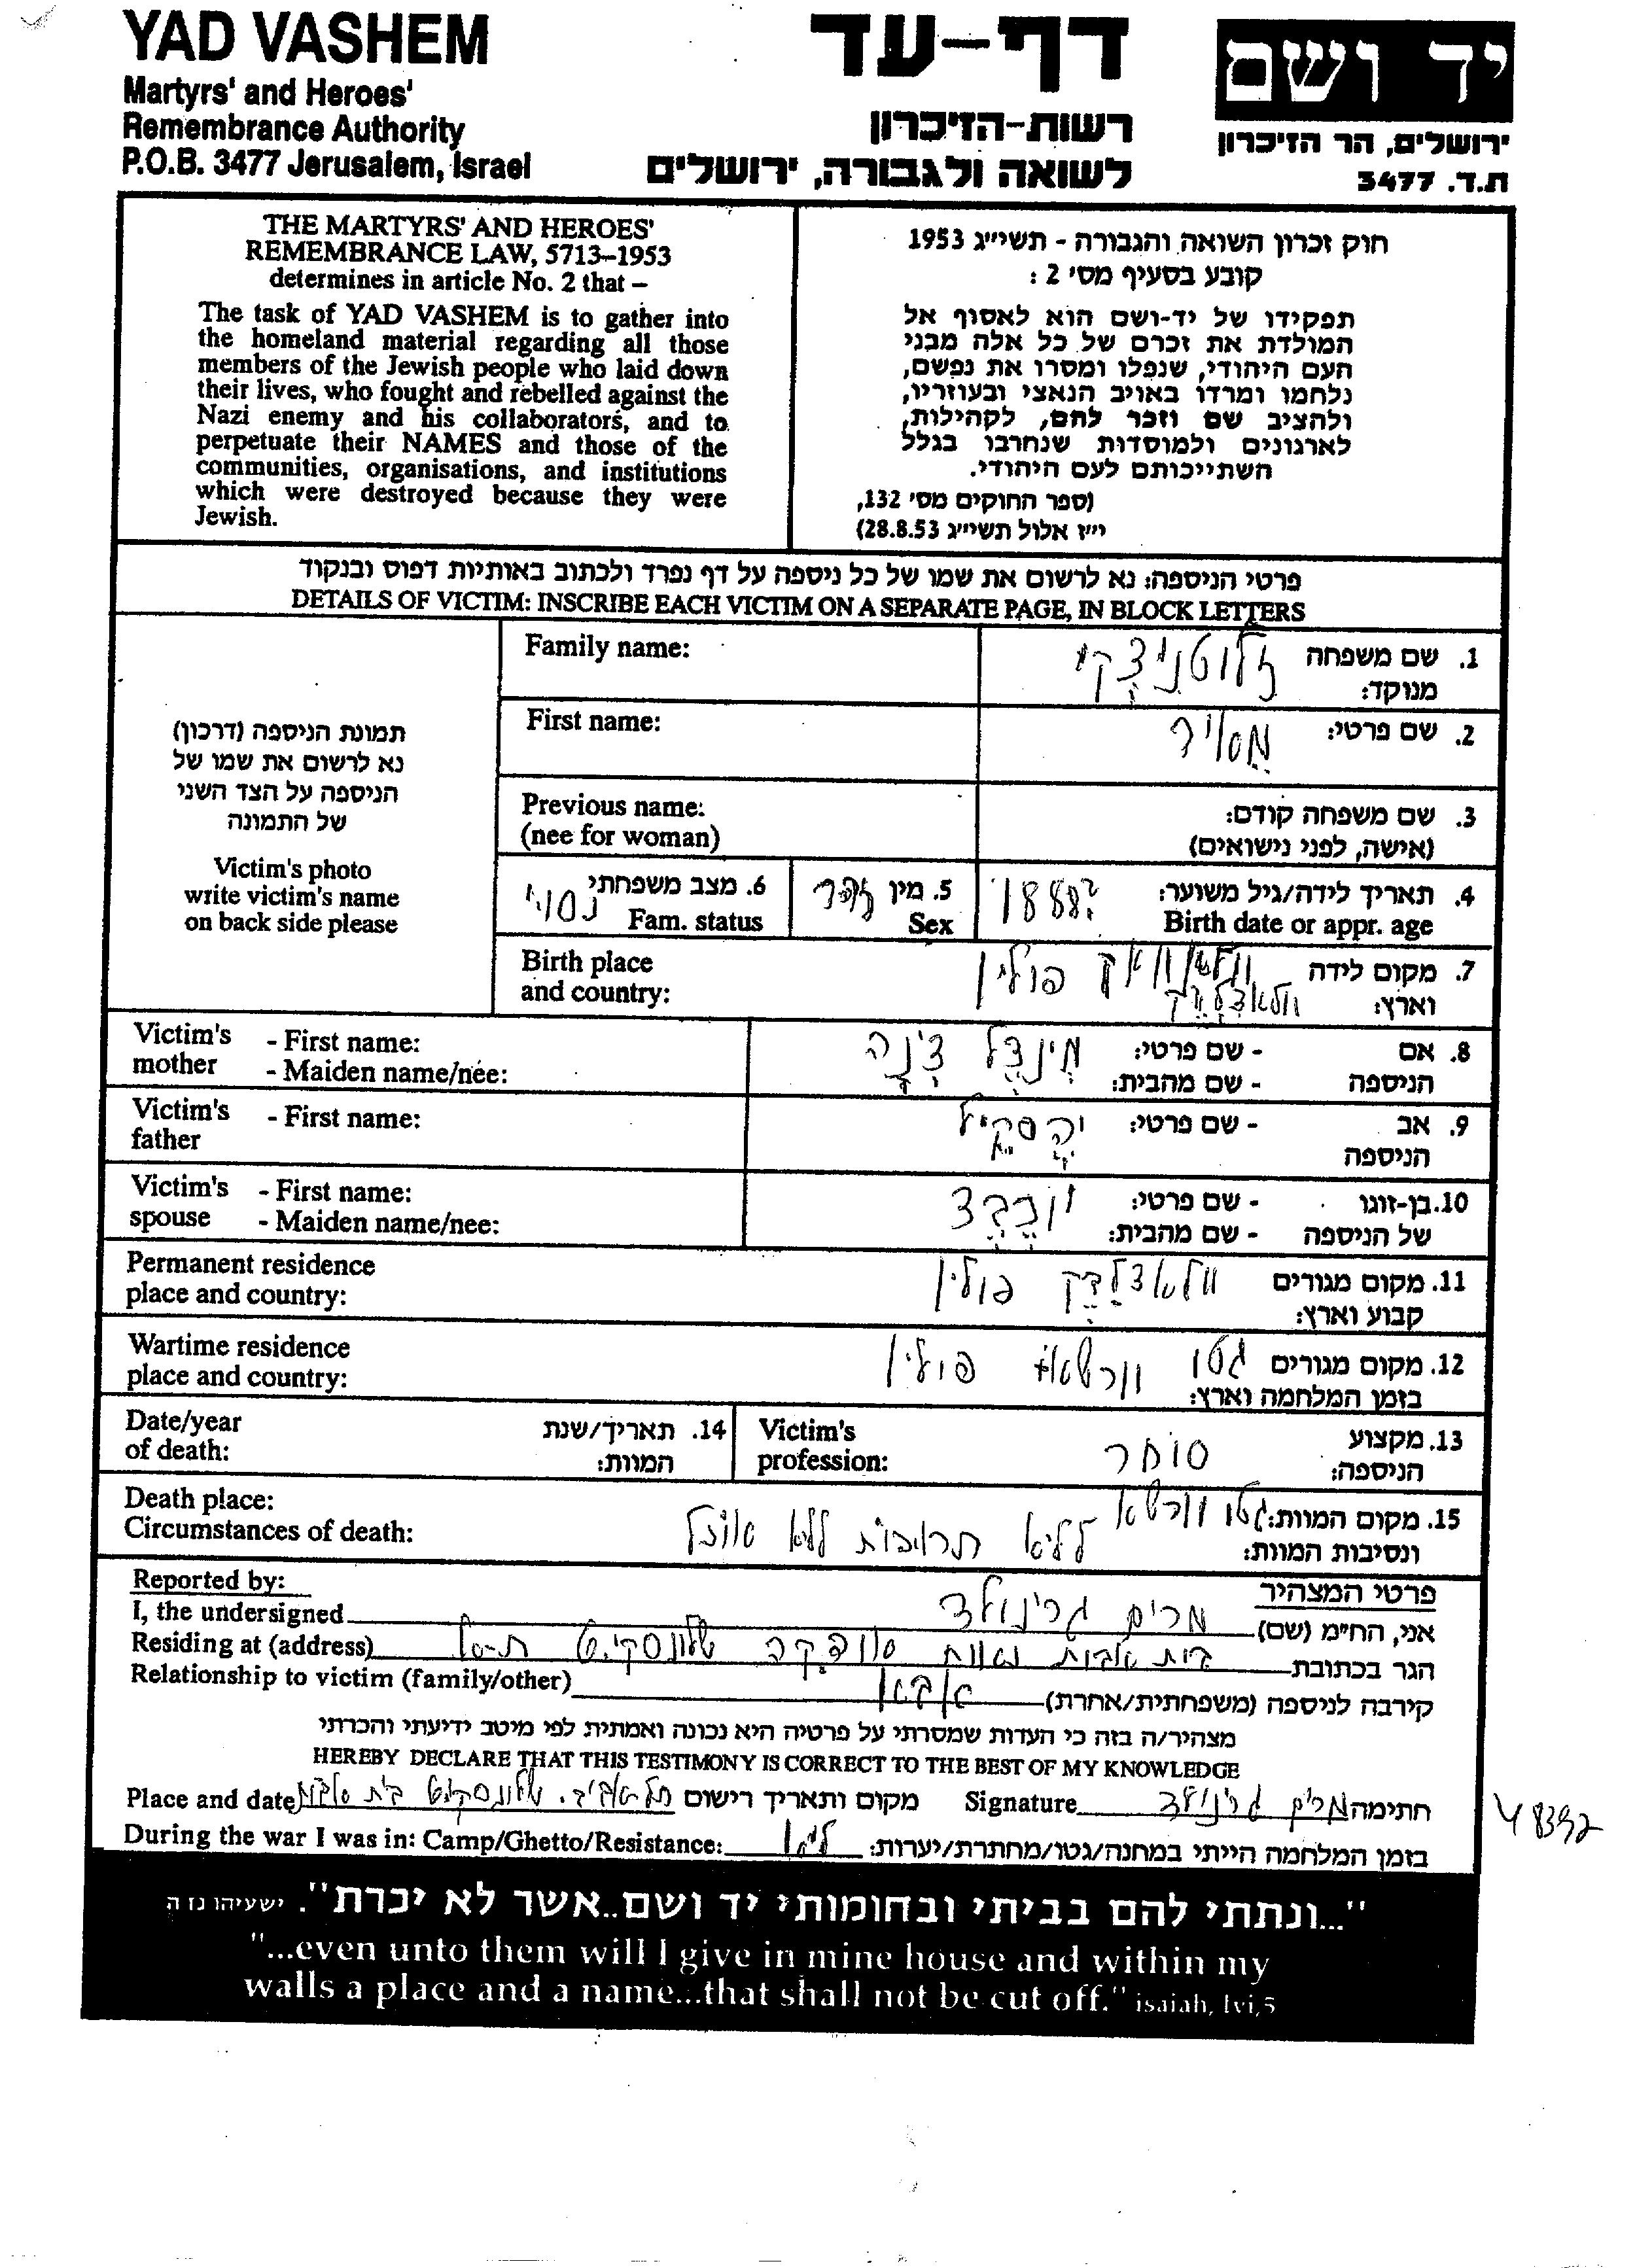 YAD VASHEM
Martyrs' and Heroes'
Remembrance Authority
P.O.B. 3477 Jerusalem, Israel
דף-עד
רשות-הזיכרון
לשואה ולגבורה, ירושלים
יד ושם
ירושלים, הר הזיכרון
ת.ד. 3477
THE MARTYRS' AND HEROES'
REMEMBRANCE LAW, 5713–1953
determines in article No. 2 that –
The task of YAD VASHEM is to gather into
the homeland material regarding all those
members of the Jewish people who laid down
their lives, who fought and rebelled against the
Nazi enemy and his collaborators, and to
perpetuate their NAMES and those of the
communities, organisations, and institutions
which were destroyed because they were
Jewish.
חוק זכרון השואה והגבורה - תשי״ג 1953
קובע בסעיף מס׳ 2 :
תפקידו של יד-ושם הוא לאסוף אל
המולדת את זכרם של כל אלה מבני
העם היהודי, שנפלו ומסרו את נפשם,
נלחמו ומרדו באויב הנאצי ובעוזריו,
ולהציב שם וזכר להם, לקהילות,
לארגונים ולמוסדות שנחרבו בגלל
השתייכותם לעם היהודי.
(ספר החוקים מס׳ 132,
י״ז אלול תשי״ג 28.8.53)
פרטי הניספה: נא לרשום את שמו של כל ניספה על דף נפרד ולכתוב באותיות דפוס ובנקוד
DETAILS OF VICTIM: INSCRIBE EACH VICTIM ON A SEPARATE PAGE, IN BLOCK LETTERS
תמונת הניספה (דרכון)
נא לרשום את שמו של
הניספה על הצד השני
של התמונה
Victim's photo
write victim's name
on back side please
Family name:
1. שם משפחה זלוטניצקי
מנוקד:
First name:
2. שם פרטי: מאיר
Previous name:
(nee for woman)
3. שם משפחה קודם:
(אישה, לפני נישואים)
4. תאריך לידה/גיל משוער: 1888
Birth date or appr. age
5. מין זכר
Sex
6. מצב משפחתי נסוי
Fam. status
Birth place
and country:
7. מקום לידה פולין
וארץ:
Victim's mother - First name:
- Maiden name/née:
8. אם הניספה - שם פרטי: מינדל דינה
- שם מהבית:
Victim's father - First name:
9. אב הניספה - שם פרטי:
Victim's spouse - First name:
- Maiden name/nee:
10. בן-זוגו של הניספה - שם פרטי: יוכבד
- שם מהבית:
Permanent residence
place and country:
11. מקום מגורים פולין
קבוע וארץ:
Wartime residence
place and country:
12. מקום מגורים גטו וורשא פולין
בזמן המלחמה וארץ:
Date/year
of death:
14. תאריך/שנת
המוות:
Victim's
profession:
13. מקצוע
הניספה: סוחר
Death place:
Circumstances of death:
15. מקום המוות: גטו וורשא
ונסיבות המוות: ללא תרופות ללא אוכל
Reported by:
פרטי המצהיר
I, the undersigned אני, הח״מ (שם) מרים גרינולד
Residing at (address) הגר בכתובת בית אבות נאות
Relationship to victim (family/other) קירבה לניספה (משפחתית/אחרת)
מצהיר/ה בזה כי העדות שמסרתי על פרטיה היא נכונה ואמתית לפי מיטב ידיעתי והכרתי
HEREBY DECLARE THAT THIS TESTIMONY IS CORRECT TO THE BEST OF MY KNOWLEDGE
Place and date מקום ותאריך רישום תל-אביב. בית אבות Signature חתימה מרים גרינולד
During the war I was in: Camp/Ghetto/Resistance: בזמן המלחמה הייתי במחנה/גטו/מחתרת/יערות:
48392
"...ונתתי להם בביתי ובחומותי יד ושם..אשר לא יכרת". ישעיהו נו ה
"...even unto them will I give in mine house and within my
walls a place and a name...that shall not be cut off." isaiah, lvi,5